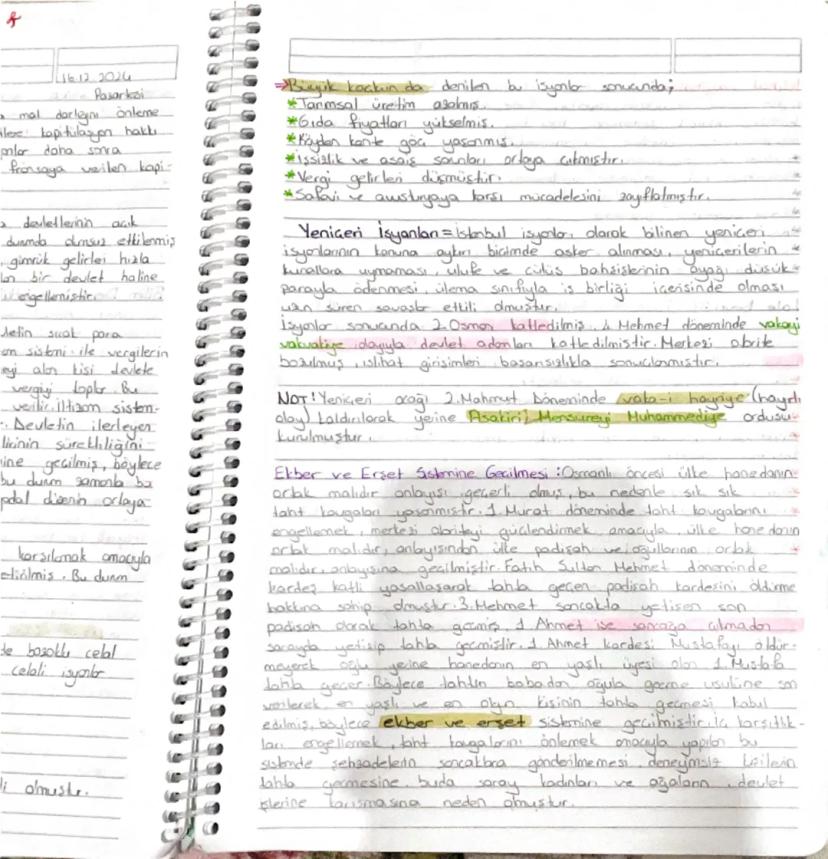 16.12.2024
Pazartesi
mal darlığını önleme
kapitülasyon hakkı
daha sonra
fransaya verilen kapi-
devletlerinin açık
durumda olumsuz etkilenmiş
gümrük gelirleri hızla
bir devlet haline
engellemiştir.
sıcak para
sistemi ile vergilerin
alan kişi devlete
vergiyi toplar. Bu
verilir. İltizam sistem-
. Devletin ilerleyen
sürekliliğini
geçilmiş, böylece
bu durum zamanla bu
düzenin ortaya
karşılamak amacıyla
. Bu durum
bozoklu celal
celali isyanlar
olmuştur.
→Büyük kaçkun da denilen bu isyanlar sonucunda;
*Tarımsal üretim azalmış.
*Gıda fiyatları yükselmiş.
*Köyden kente göç yaşanmış.
*İşsizlik ve asaiş sorunları ortaya çıkmıştır.
*Vergi gelirleri düşmüştür.
*Safavi ve avusturyaya karşı mücadelesini zayıflatmıştır.
Yeniçeri İsyanları=İstanbul isyanları olarak bilinen yeniçeri
isyanlarının kanuna aykırı biçimde asker alınması, yeniçerilerin
kurallara uymaması, ulufe ve cülüs bahşişlerinin ayağı düşük
parayla ödenmesi, ülema sınıfıyla iş birliği içerisinde olması
uzun süren savaşlar etkili olmuştur.
İsyanlar sonucunda 2.Osman katledilmiş, 4.Mehmet döneminde vakayi
vakvakiye olayıyla devlet adamları katledilmiştir. Merkezi otorite
bozulmuş, ıslihat girişimleri başarısızlıkla sonuçlanmıştır.
NOT! Yeniçeri ocağı 2.Mahmut Döneminde vaka-i hayriye (hayırlı
olay) kaldırılarak yerine Asakiri Mensureyi Muhammediye ordusu
kurulmuştur.
Ekber ve Erşet Sistemine Geçilmesi: Osmanlı öncesi ülke hanedanın
ortak malıdır anlayışı geçerli olmuş, bu nedenle sık sık
taht kavgaları yaşanmıştır. 1.Murat döneminde taht kavgalarını
engellemek, merkezi otoriteyi güçlendirmek amacıyla, ülke hanedanın
ortak malıdır, anlayışından ülke padişah ve oğullarının ortak
malıdır, anlayışına geçilmiştir. Fatih Sultan Mehmet döneminde
kardeş katli yasallaşarak tahta geçen padişah kardeşini öldürme
hakkına sahip olmuştur. 3.Mehmet sancakta yetişen son
padişah olarak tahta geçmiş, 1 Ahmet ise sancağa çıkmadan
sarayda yetişip tahta geçmiştir. 1 Ahmet kardeşi Mustafayı öldür-
meyerek oğlu yerine hanedanın en yaşlı üyesi olan 1.Mustafa
tahta geçer. Böylece tahtın babadan oğula geçme usulüne son
verilerek, en yaşlı ve en olgun kişinin tahta geçmesi kabul
edilmiş, böylece ekber ve erşet sistemine geçilmiştir. İç karşıtlık-
ları engellemek, taht kavgalarını önlemek amacıyla yapılan bu
sistemde şehzadelerin sancaklara gönderilmemesi, deneyimsiz kişilerin
tahta geçmesine, buda saray kadınları ve ağaların, devlet
işlerine karışmasına neden olmuştur.